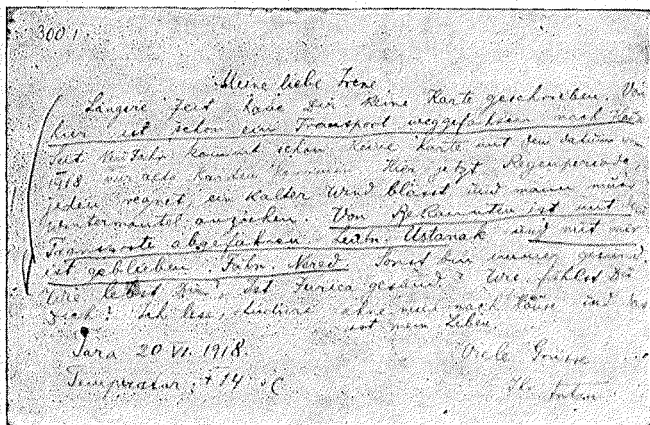 300 1
Meine liebe Irene
Längere Zeit habe Dir keine Karte geschrieben. Von
hier ist schon ein Transport weggefahren nach
Seit Neujahr kommt schon keine Karte mit dem Datum von
1918 nur alte Karten kommen Hier jetzt Regenperiode,
jeden regnet, ein kalter Wind blässt und mann muss
wintermantel anziehen. Von Bekannten ist mit
Transporte abgefahren Leutn. Ustanak und mit mir
ist geblieben Fähn. Nered Sonst bin immer gesund.
Wie lebst Du? Ist Jurica gesund? Wie fühlst Du
Dich? Ich lese, studiere nach Hause und das
ist mein Leben.
Jara 20 VI. 1918.
Viele Grüsse
Temperatur: + 14 °C
Antun